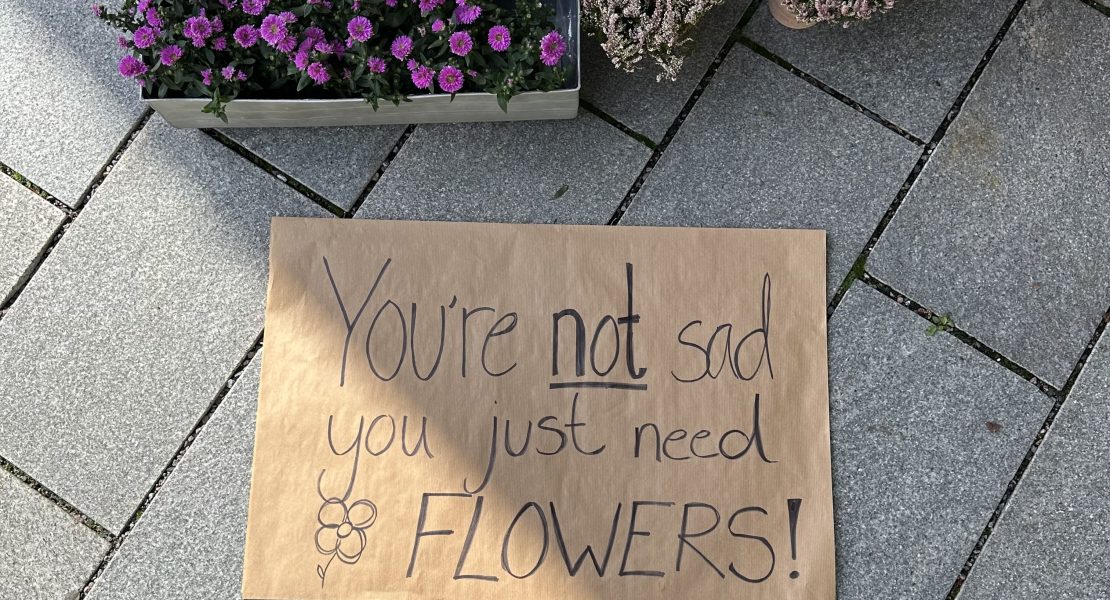 You're not sad
you just need
FLOWERS!